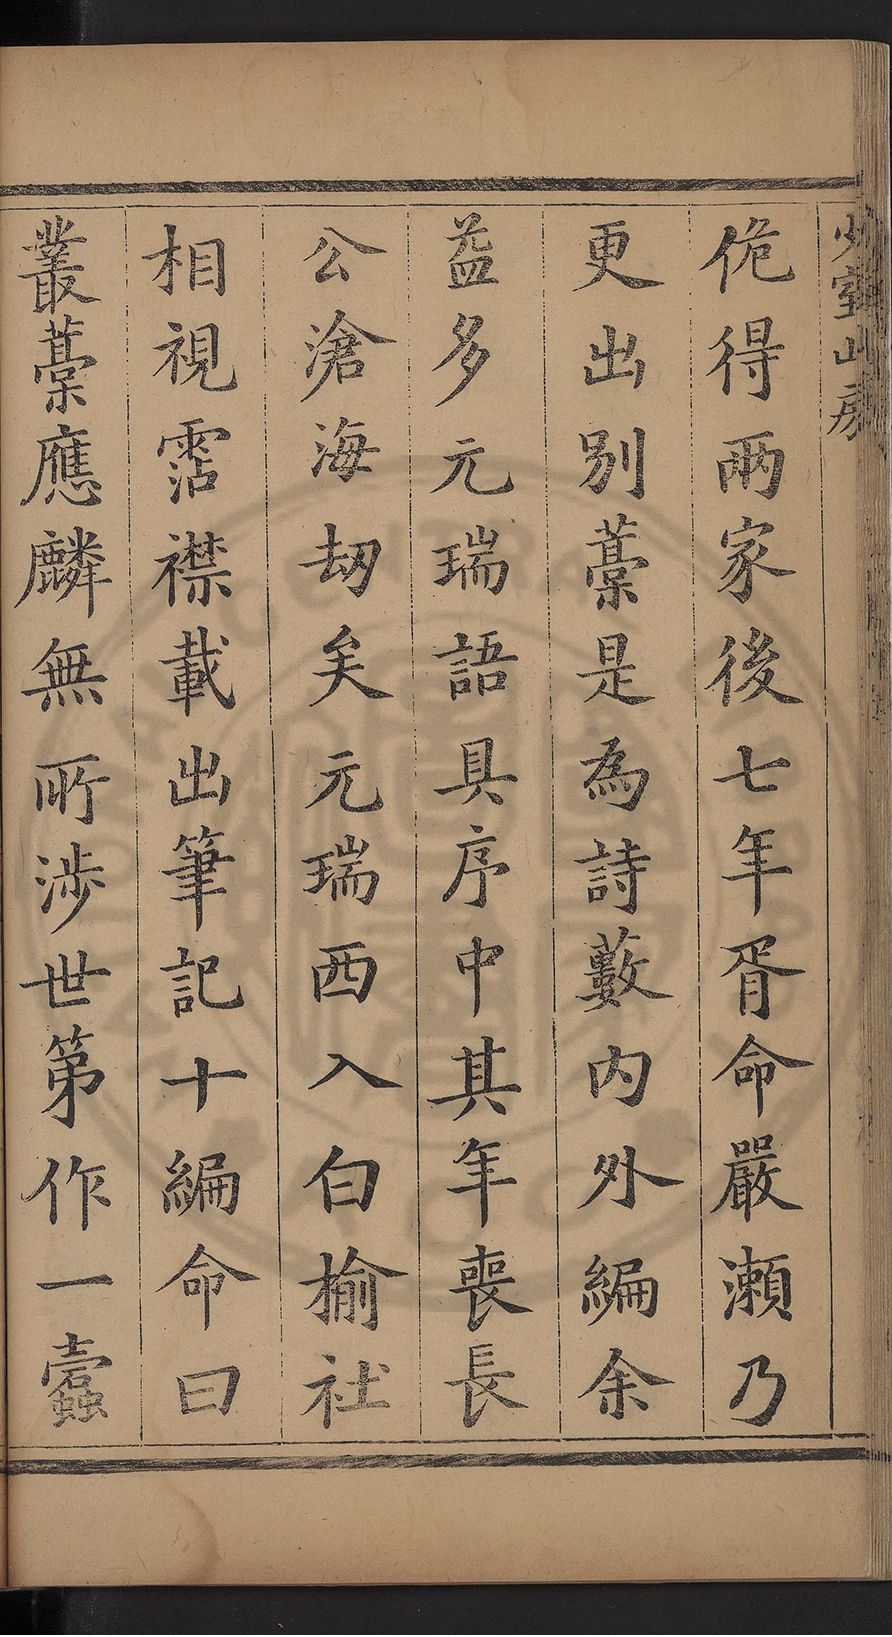 少室山房
佹得兩家後七年胥命嚴瀨乃
更出别藁是為詩藪内外編余
益多元瑞語具序中其年喪長
公滄海刼矣元瑞西入白榆社
相視霑襟載出筆記十編命曰
叢藁應麟無所涉世第作一蠹